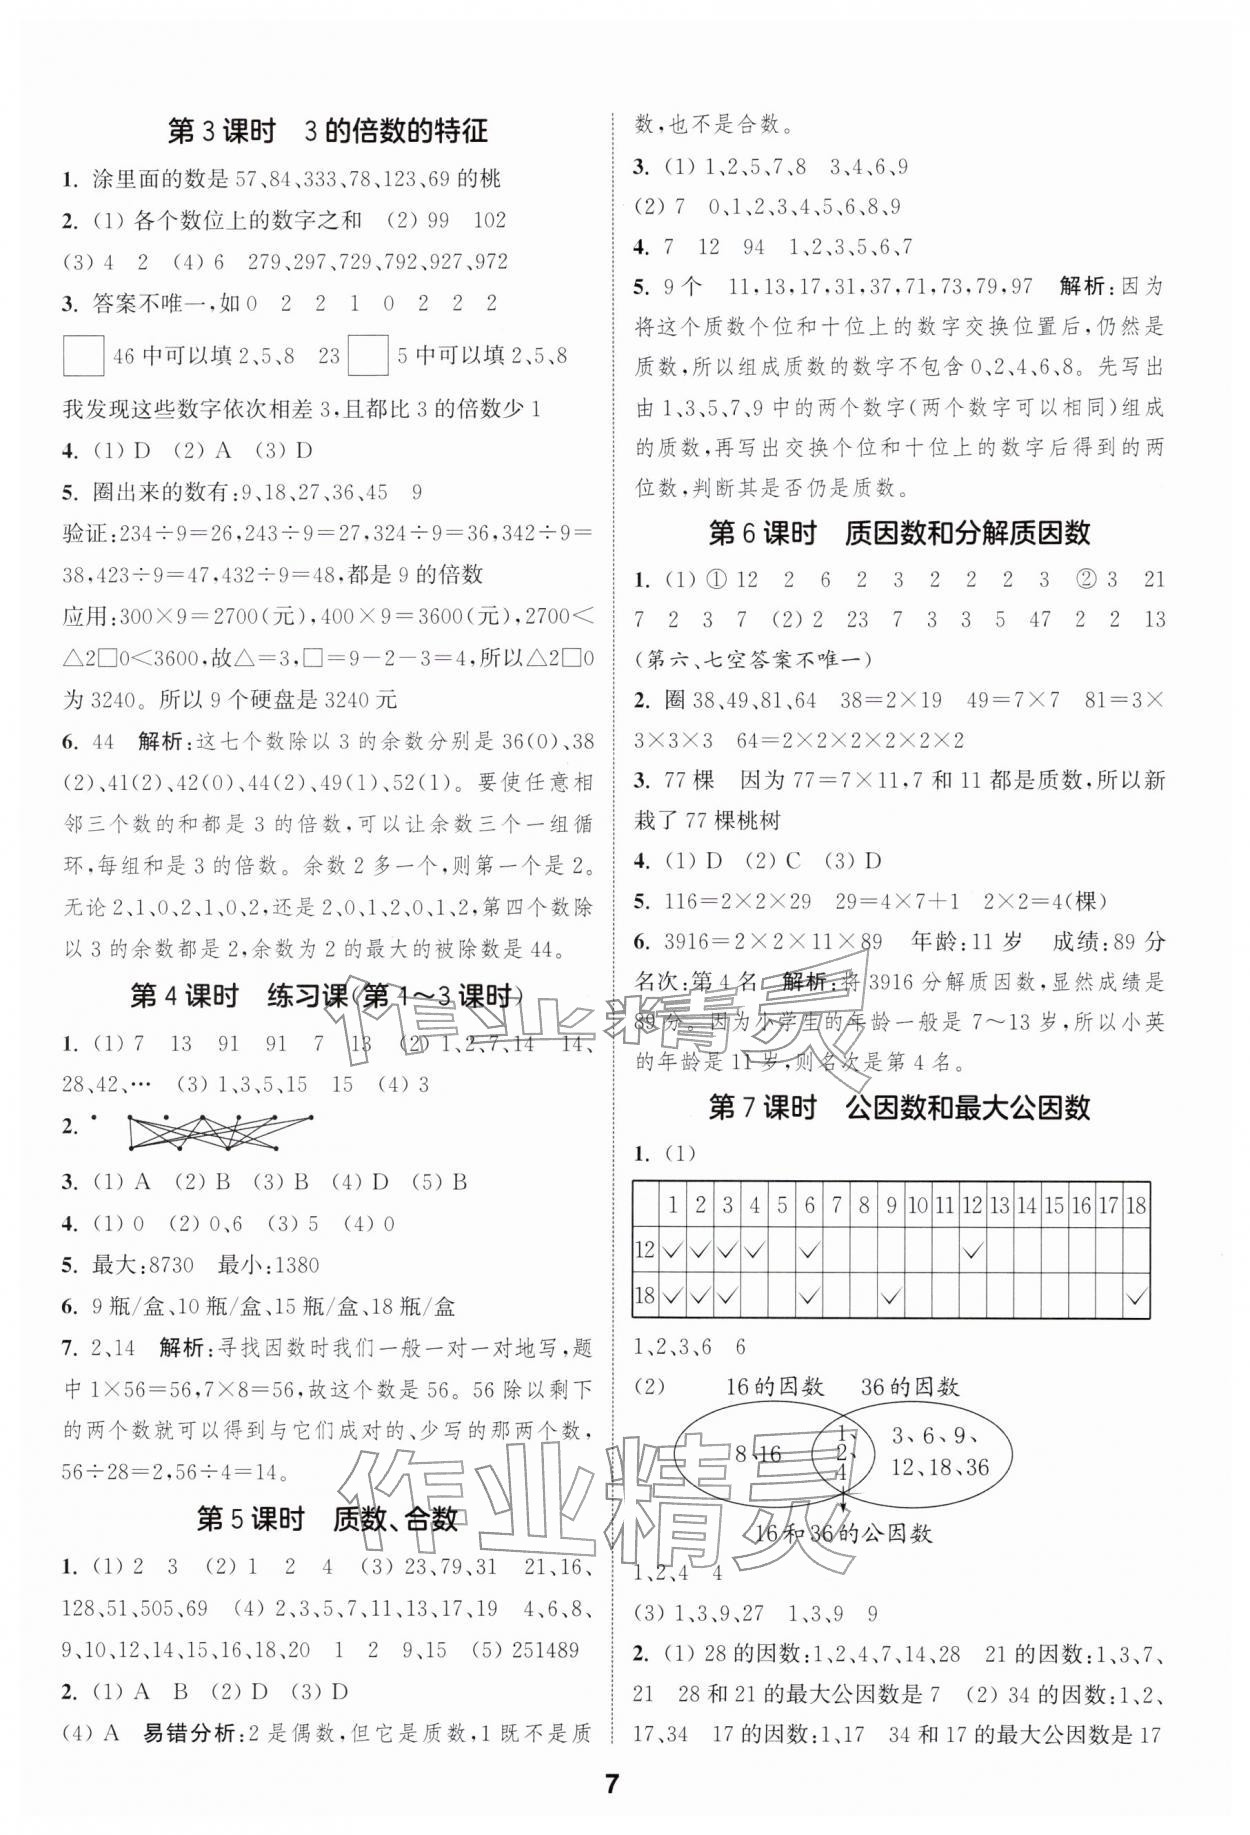 第 3 课时　3 的倍数的特征
1. 涂里面的数是 57、84、333、78、123、69 的桃
2. (1) 各个数位上的数字之和　(2) 99　102
(3) 4　2　(4) 6　279、297、729、792、927、972
3. 答案不唯一,如 0　2　2　1　0　2　2　2
□ 46 中可以填 2、5、8　23 □ 5 中可以填 2、5、8
我发现这些数字依次相差 3,且都比 3 的倍数少 1
4. (1) D　(2) A　(3) D
5. 圈出来的数有:9、18、27、36、45　9
验证:234÷9=26,243÷9=27,324÷9=36,342÷9=
38,423÷9=47,432÷9=48,都是 9 的倍数
应用:300×9=2700(元),400×9=3600(元),2700<
△2□0<3600,故△=3,□=9-2-3=4,所以△2□0
为 3240。所以 9 个硬盘是 3240 元
6. 44　解析:这七个数除以 3 的余数分别是 36(0)、38
(2)、41(2)、42(0)、44(2)、49(1)、52(1)。要使任意相
邻三个数的和都是 3 的倍数,可以让余数三个一组循
环,每组和是 3 的倍数。余数 2 多一个,则第一个是 2。
无论 2、1、0、2、1、0、2,还是 2、0、1、2、0、1、2,第四个数除
以 3 的余数都是 2,余数为 2 的最大的被除数是 44。
第 4 课时　练习课(第 1～3 课时)
1. (1) 7　13　91　91　7　13　(2) 1、2、7、14　14、
28、42、…　(3) 1、3、5、15　15　(4) 3
2.
3. (1) A　(2) B　(3) B　(4) D　(5) B
4. (1) 0　(2) 0、6　(3) 5　(4) 0
5. 最大:8730　最小:1380
6. 9 瓶/盒、10 瓶/盒、15 瓶/盒、18 瓶/盒
7. 2、14　解析:寻找因数时我们一般一对一对地写,题
中 1×56=56,7×8=56,故这个数是 56。56 除以剩下
的两个数就可以得到与它们成对的、少写的那两个数,
56÷28=2,56÷4=14。
第 5 课时　质数、合数
1. (1) 2　3　(2) 1　2　4　(3) 23、79、31　21、16、
128、51、505、69　(4) 2、3、5、7、11、13、17、19　4、6、8、
9、10、12、14、15、16、18、20　1　2　9、15　(5) 251489
2. (1) A　B　(2) D　(3) D
(4) A　易错分析:2 是偶数,但它是质数,1 既不是质
数,也不是合数。
3. (1) 1、2、5、7、8　3、4、6、9
(2) 7　0、1、2、3、4、5、6、8、9
4. 7　12　94　1、2、3、5、6、7
5. 9 个　11,13,17,31,37,71,73,79,97　解析:因为
将这个质数个位和十位上的数字交换位置后,仍然是
质数,所以组成质数的数字不包含 0、2、4、6、8。先写出
由 1、3、5、7、9 中的两个数字(两个数字可以相同)组成
的质数,再写出交换个位和十位上的数字后得到的两
位数,判断其是否仍是质数。
第 6 课时　质因数和分解质因数
1. (1) ① 12　2　6　2　3　2　2　2　3　② 3　21
7　2　3　7　(2) 2　23　7　3　3　5　47　2　2　13
(第六、七空答案不唯一)
2. 圈 38、49、81、64　38=2×19　49=7×7　81=3×
3×3×3　64=2×2×2×2×2×2
3. 77 棵　因为 77=7×11,7 和 11 都是质数,所以新
栽了 77 棵桃树
4. (1) D　(2) C　(3) D
5. 116=2×2×29　29=4×7+1　2×2=4(棵)
6. 3916=2×2×11×89　年龄:11 岁　成绩:89 分
名次:第 4 名　解析:将 3916 分解质因数,显然成绩是
89 分。因为小学生的年龄一般是 7～13 岁,所以小英
的年龄是 11 岁,则名次是第 4 名。
第 7 课时　公因数和最大公因数
1. (1)
1 2 3 4 5 6 7 8 9 10 11 12 13 14 15 16 17 18
12 ✓ ✓ ✓ ✓ ✓ ✓
18 ✓ ✓ ✓ ✓ ✓ ✓
1、2、3、6　6
(2)　16 的因数　36 的因数
8、16　1、2、4　3、6、9、
12、18、36
16 和 36 的公因数
1、2、4　4
(3) 1、3、9、27　1、3、9　9
2. (1) 28 的因数:1、2、4、7、14、28　21 的因数:1、3、7、
21　28 和 21 的最大公因数是 7　(2) 34 的因数:1、2、
17、34　17 的因数:1、17　34 和 17 的最大公因数是 17
7
作业精灵
作业精灵